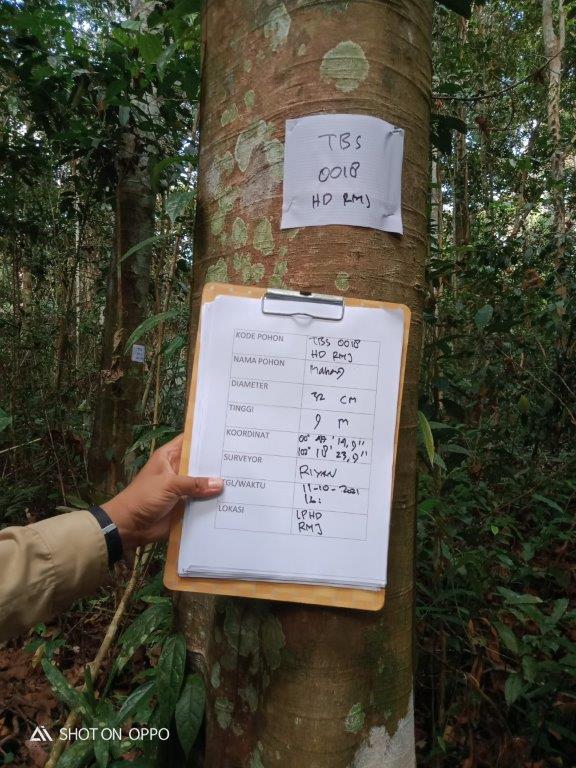 TBS
0018
HD RMJ
KODE POHON
TBS 0018
HD RMJ
NAMA POHON
DIAMETER
32 CM
TINGGI
9 M
KOORDINAT
SURVEYOR
RIYAN
TGL/WAKTU
11-10-2021
LOKASI
LPHD
RMJ
SHOT ON OPPO